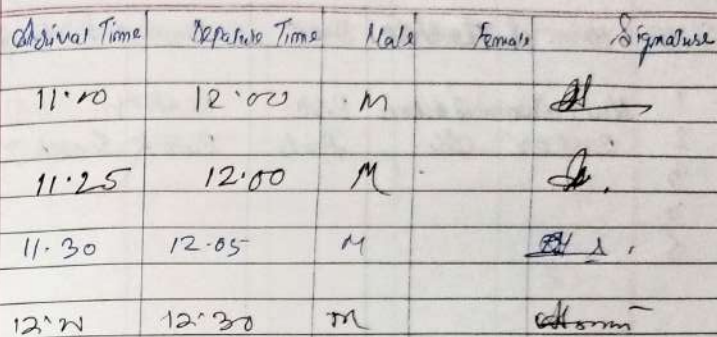 Arrival Time Depature Time Male Female Signature
12:00 M
11.25 12.00 M
11.30 12.05 M
12:30 M